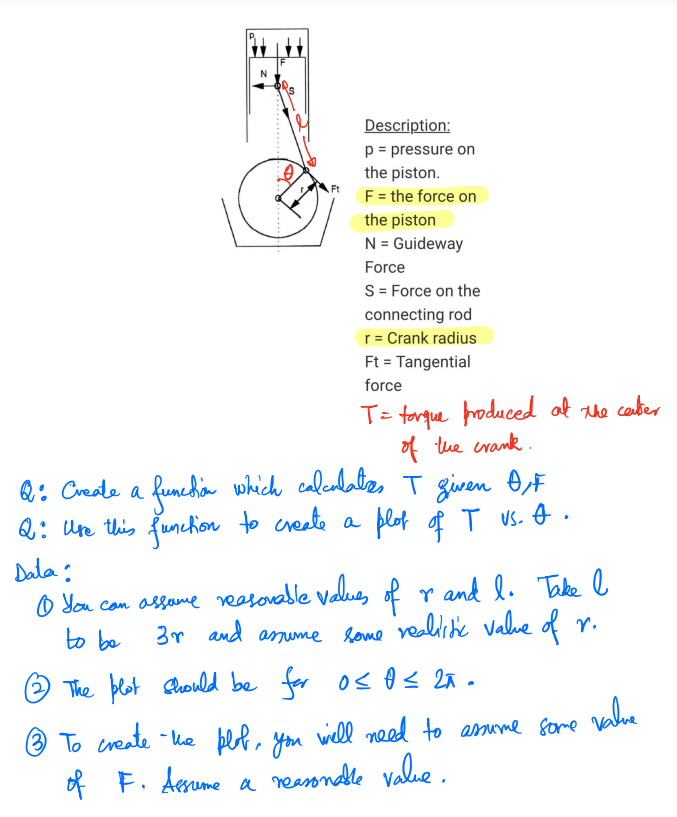 p
F
N
S
l
θ
r
Ft
Description:
p = pressure on
the piston.
F = the force on
the piston
N = Guideway
Force
S = Force on the
connecting rod
r = Crank radius
Ft = Tangential
force
T = torque produced at the center
of the crank.
Q: Create a function which calculates T given θ, F
Q: Use this function to create a plot of T vs. θ.
Data:
① You can assume reasonable values of r and l. Take l
to be 3r and assume some realistic value of r.
② The plot should be for 0 ≤ θ ≤ 2π.
③ To create the plot, you will need to assume some value
of F. Assume a reasonable value.